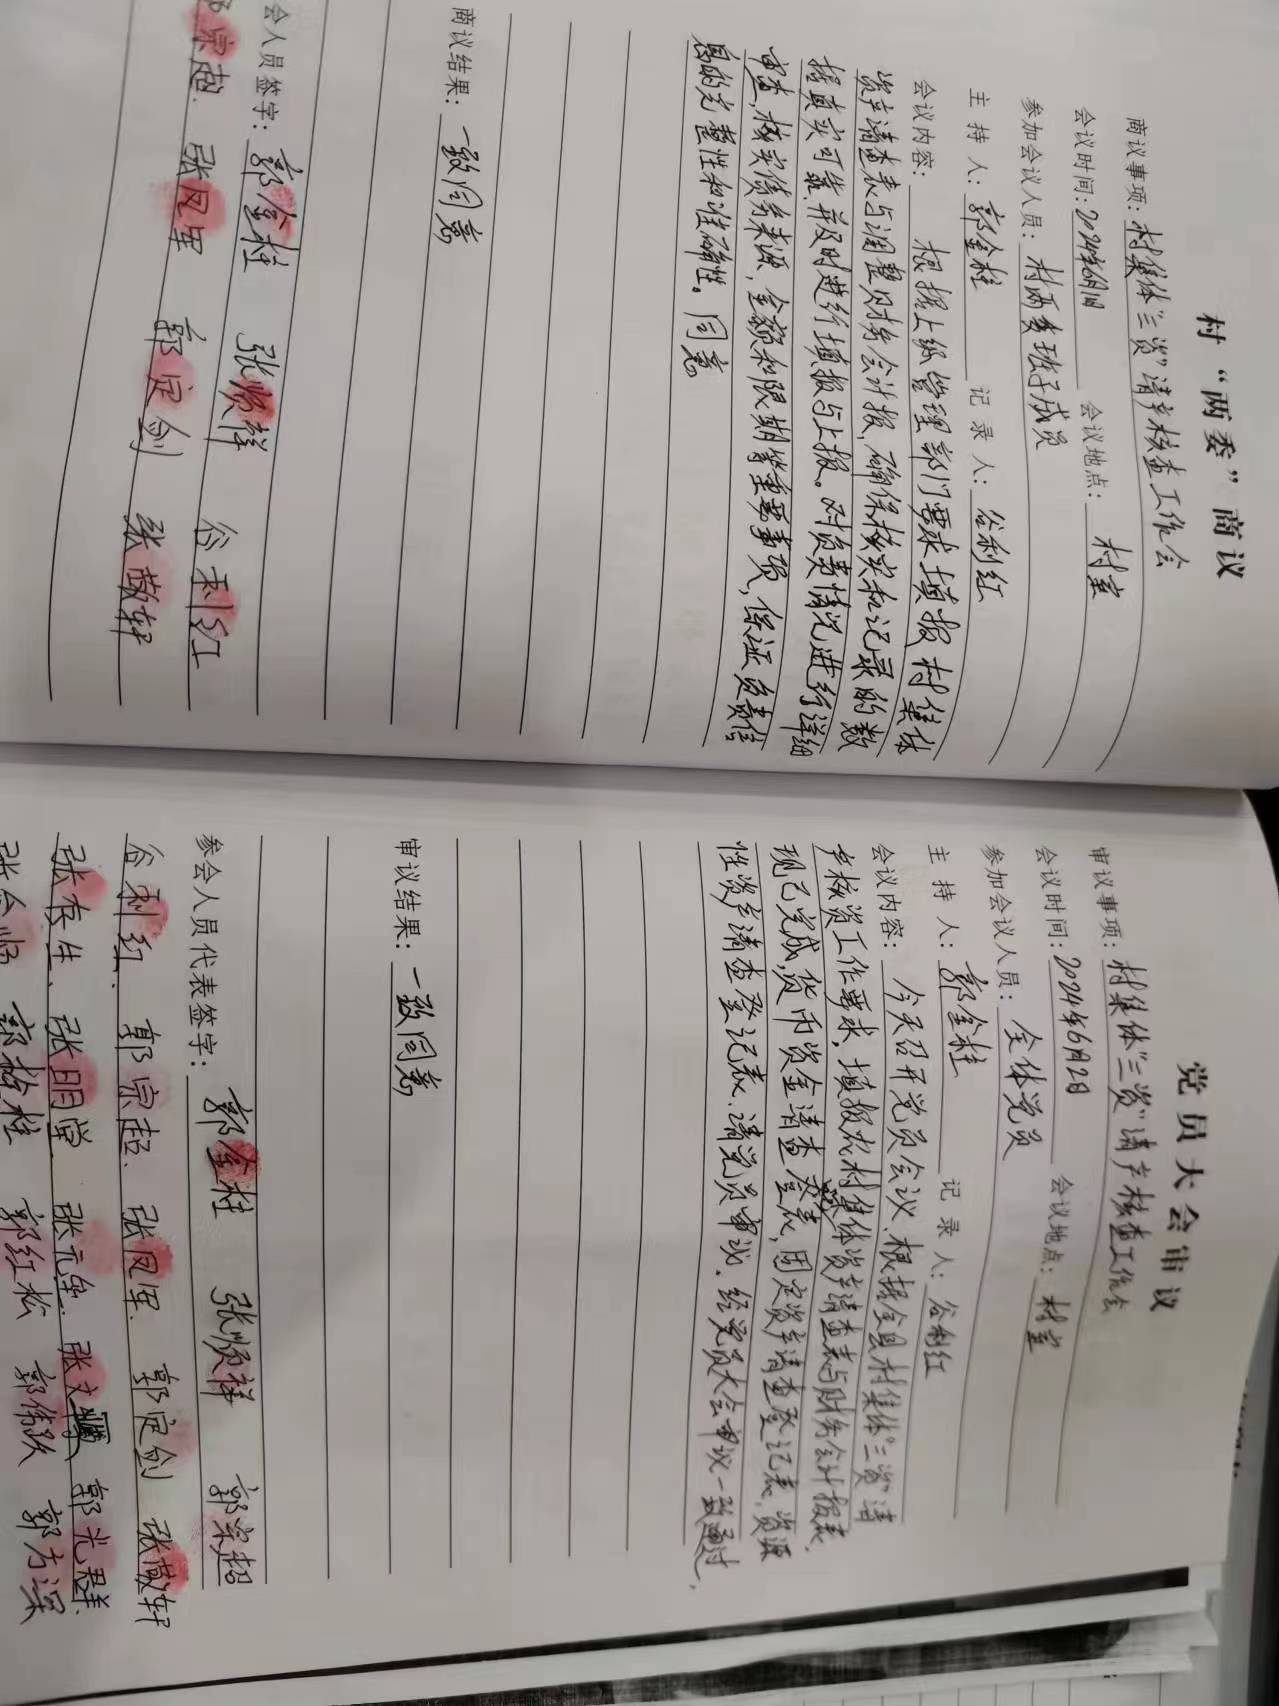 村“两委”商议
商议事项：村集体“三资”清产核查工作会
会议时间：2024年6月1日 会议地点：村室
参加会议人员：村两委班子成员
主持人：郭金柱 记录人：谷利红
会议内容：根据上级管理部门要求填报村集体
资产清查表与调整财务会计报，确保核实和记录的数
据真实可靠，并及时进行填报与上报。对负责情况进行详细
审查，核实债务来源，金额和限期等重要事项，保证负责信
息的完整性和准确性。同意
商议结果：一致同意
会人员签字：郭金柱 张顺祥 谷利红
郭宗超. 张凤军 郭定剑 张敬轩
党员大会审议
审议事项：村集体“三资”清产核查工作会
会议时间：2024年6月2日 会议地点：村室
参加会议人员：全体党员
主持人：郭金柱 记录人：谷利红
会议内容：今天召开党员会议，根据全县村集体“三资”清
产核资工作要求，填报我村集体资产清查表与财务会计报表，
现已完成货币资金清查登表，固定资产清查登记表，资源
性资产清查登记表、请党员审议．经党员大会审议一致通过．
审议结果：一致同意
参会人员代表签字：郭金柱 张顺祥 郭宗超
谷利红. 郭宗超. 张凤军. 郭定剑 张敬轩
张春生. 张明堂. 张元 张文 郭光群.
张会 郭 柱 郭红松 郭伟跃 郭